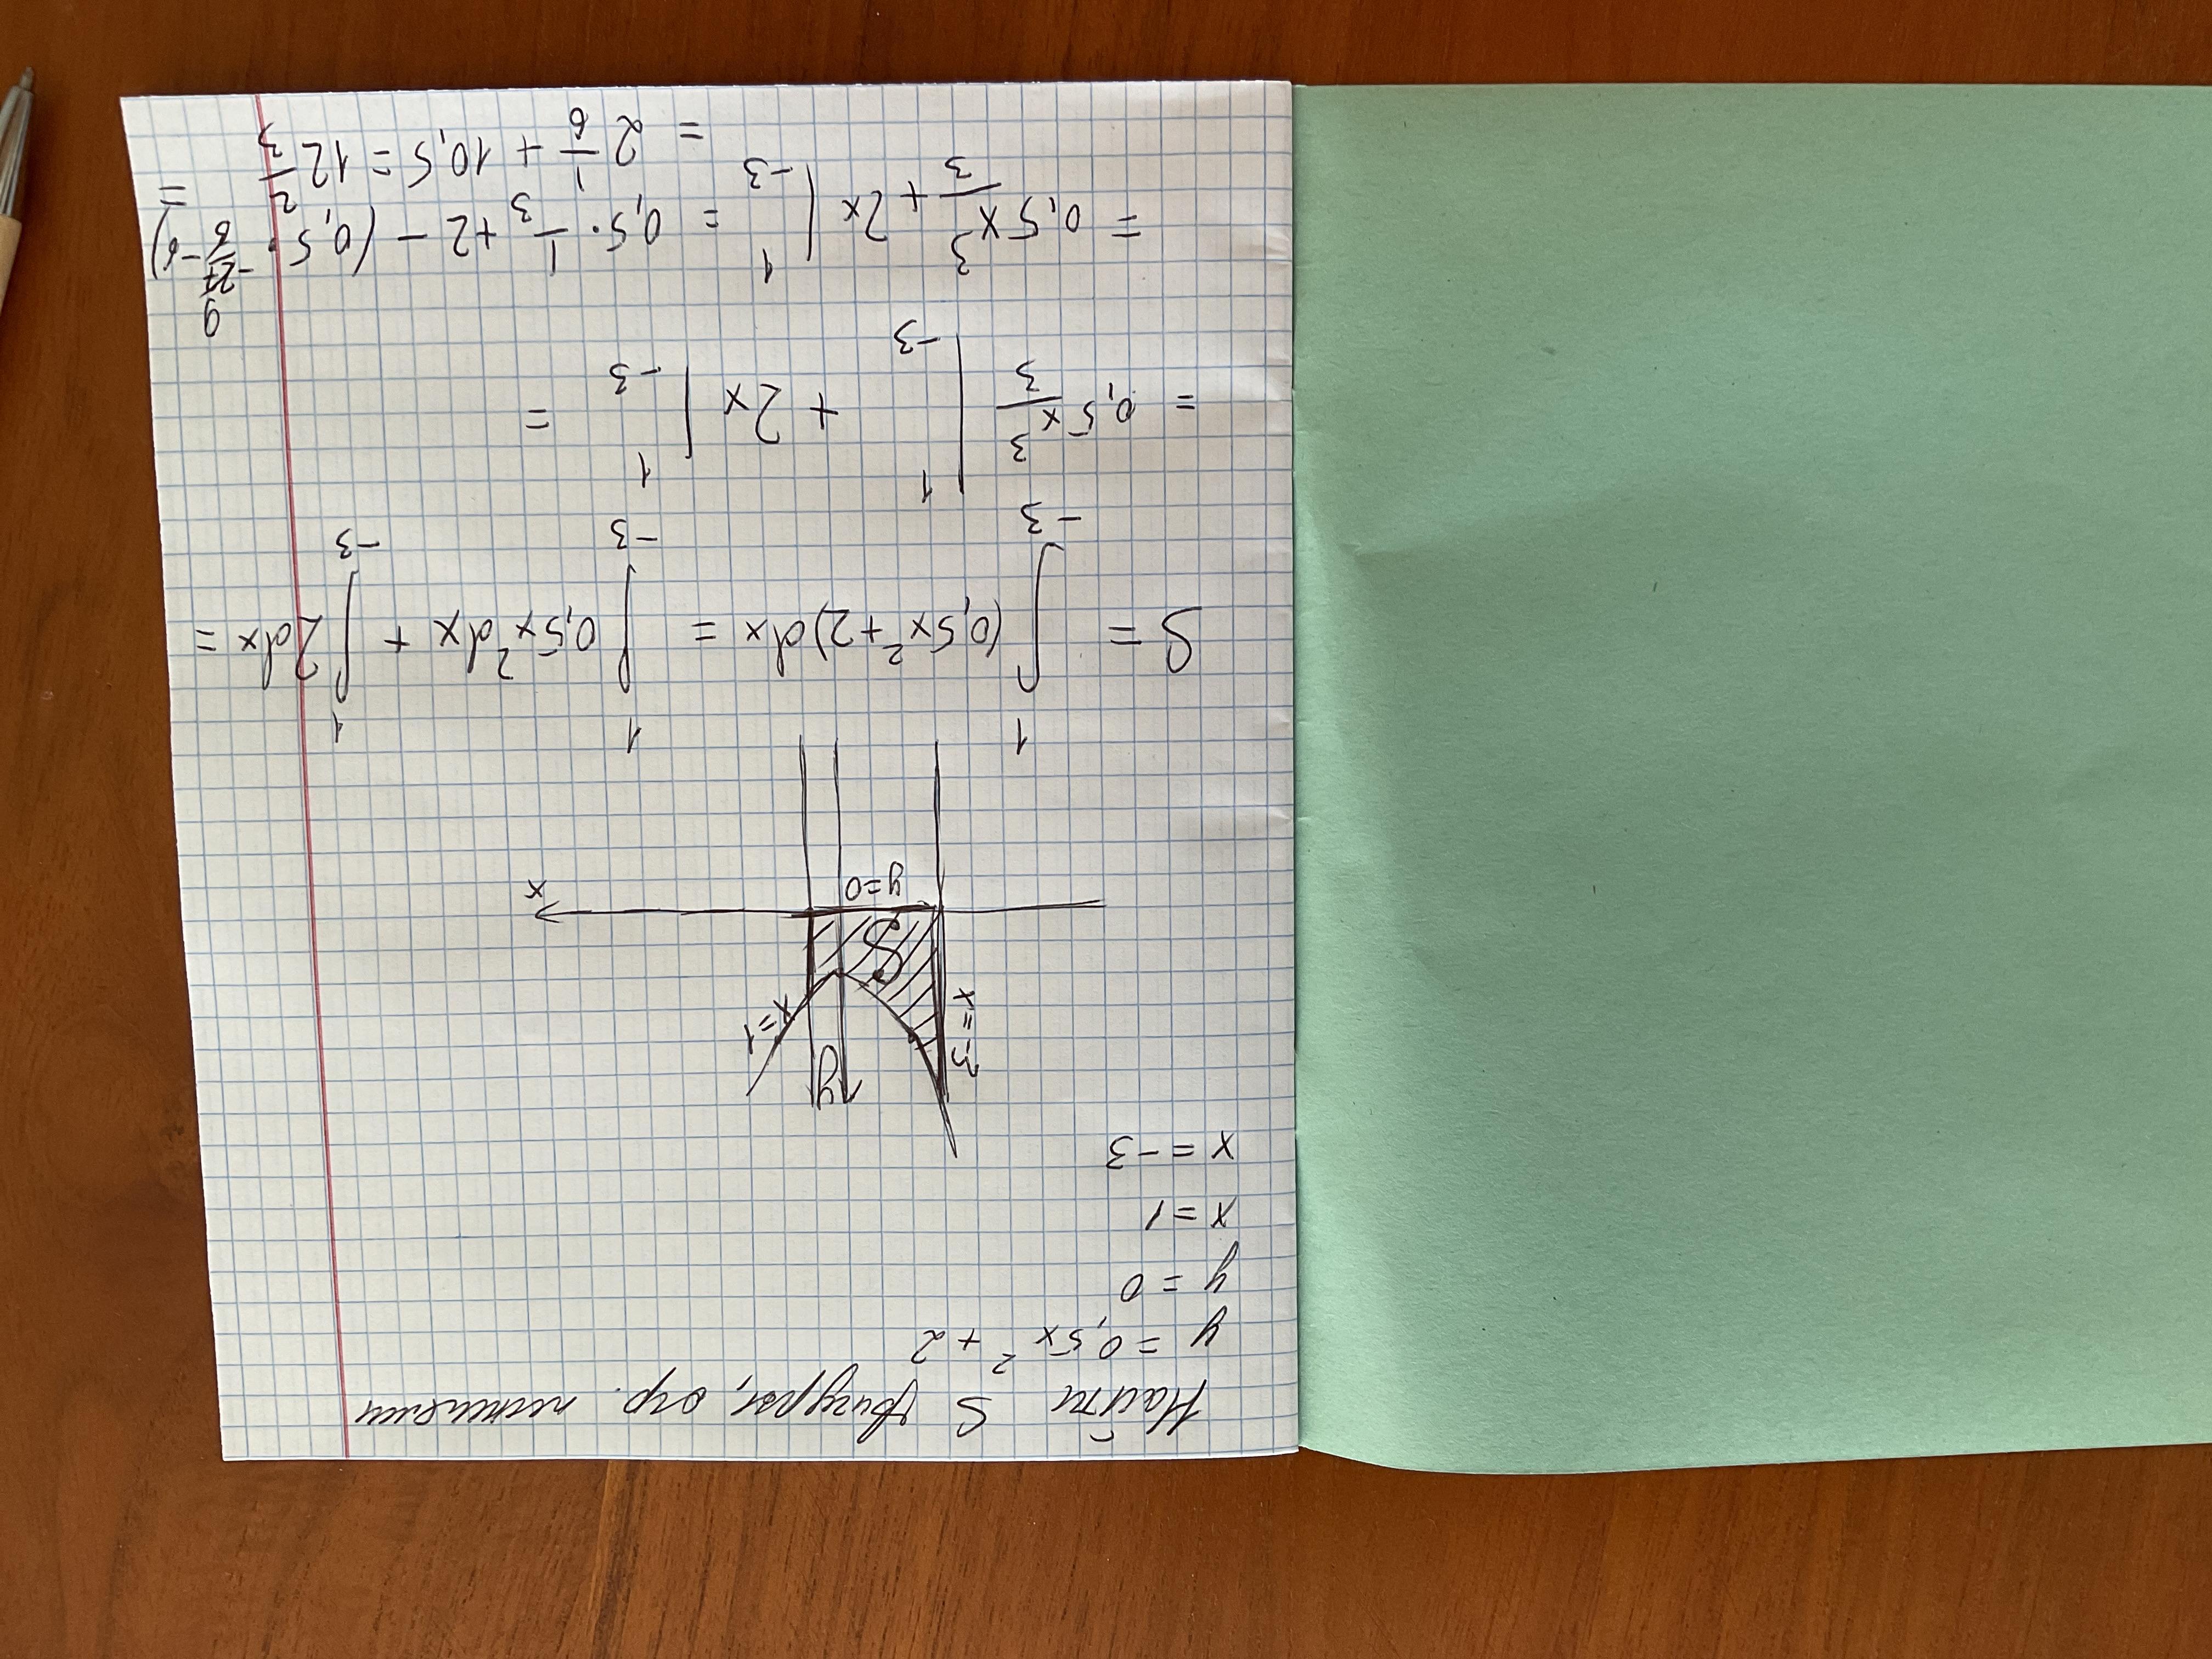 Найти S фигуры, огр. линиями
y = 0,5x² + 2
y = 0
x = 1
x = -3
y
x = -3
x = 1
S
y=0
x
S = ∫₋₃¹ (0,5x²+2)dx = ∫₋₃¹ 0,5x²dx + ∫₋₃¹ 2dx =
= 0,5 x³/3 |₋₃¹ + 2x |₋₃¹ =
= 0,5 x³/3 + 2x |₋₃¹ = 0,5 · 1/3 + 2 - (0,5 ·
= 2 1/6 + 10,5 = 12 2/3